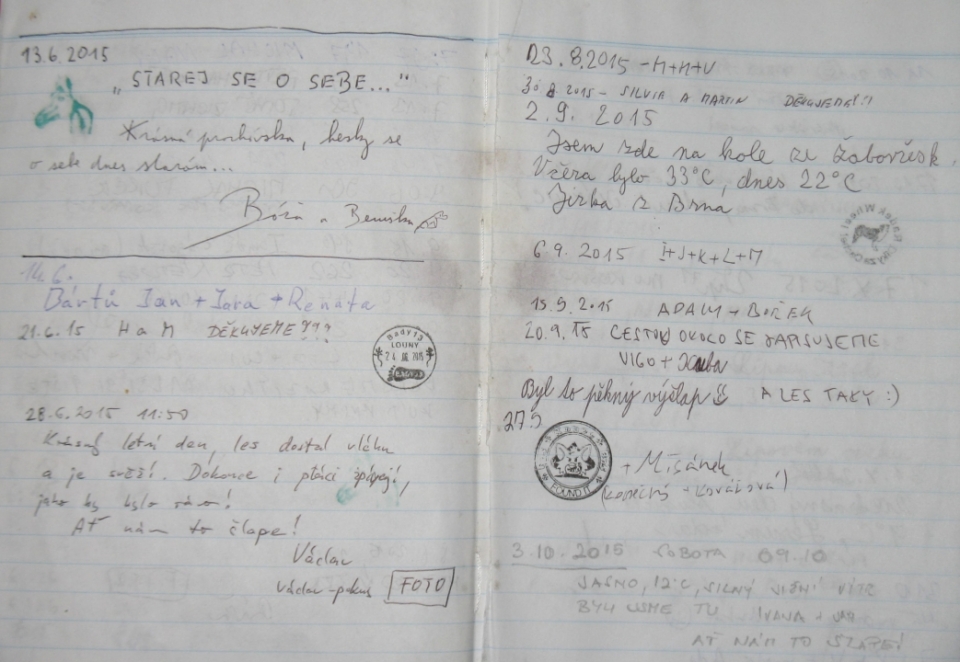 13.6.2015
„STAREJ SE O SEBE..."
Krásná procházka, hezky se
o sebe dnes starám...
Bóža a Beruška
14.6.
Bártů Jan + Jara + Renata
21.6.15 H a M DĚKUJEME!!!
LOUNY
28.6.2015 11:50
Krásný letní den, les dostal vláhu
a je svěží. Dokonce i ptáci zpívají,
jako by bylo ráno!
Ať nám to člape!
Václav
FOTO
23.8.2015 - M+M+V
30.8.2015 - SILVIA A MARTIN DĚKUJEME!!
2.9.2015
Jsem zde na kole ze Žabovřesk.
Včera bylo 33°C, dnes 22°C
Jirka z Brna
6.9.2015 I+J+K+L+M
15.9.2015 ADAM + BOŘEK
20.9.15 CESTOU OKOLO SE ZAPISUJEME
VIGO + Kuba
Byl to pěkný výšlap A LES TAKY :)
27.9
+ Míšánek
3.10.2015 SOBOTA 09.10
JASNO, 12°C, SILNÝ JIŽNÍ VÍTR
BYLI JSME TU IVANA +
AŤ NÁM TO ŠLAPE!